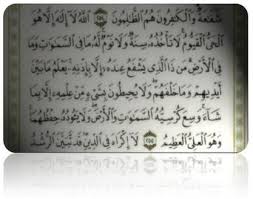 شَفَٰعَةٌ وَالْكَٰفِرُونَ هُمُ الظَّٰلِمُونَ ۝٢٥٤ اللَّهُ لَا إِلَٰهَ إِلَّا هُوَ
الْحَيُّ الْقَيُّومُ لَا تَأْخُذُهُ سِنَةٌ وَلَا نَوْمٌ لَهُ مَا فِي السَّمَٰوَٰتِ وَمَا
فِي الْأَرْضِ مَنْ ذَا الَّذِي يَشْفَعُ عِنْدَهُ إِلَّا بِإِذْنِهِ يَعْلَمُ مَا بَيْنَ
أَيْدِيهِمْ وَمَا خَلْفَهُمْ وَلَا يُحِيطُونَ بِشَيْءٍ مِنْ عِلْمِهِ إِلَّا بِمَا
شَاءَ وَسِعَ كُرْسِيُّهُ السَّمَٰوَٰتِ وَالْأَرْضَ وَلَا يَئُودُهُ حِفْظُهُمَا
وَهُوَ الْعَلِيُّ الْعَظِيمُ ۝٢٥٥ لَا إِكْرَاهَ فِي الدِّينِ قَدْ تَبَيَّنَ الرُّشْدُ